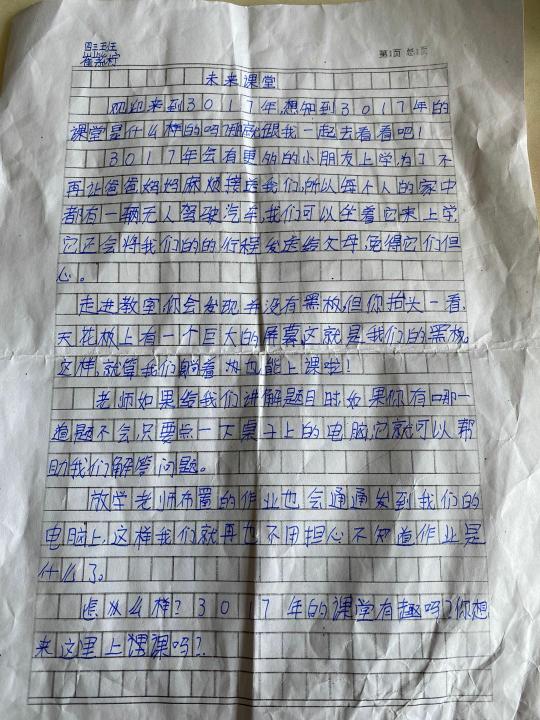 四三班
第1页 总1页
未来课堂
欢迎来到3017年,想知到3017年的
课堂是什么样的吗?那就跟我一起去看看吧!
3017年会有更多的小朋友上学,为了不
再让爸爸妈妈麻烦接送我们,所以每个人的家中
都有一辆无人驾驶汽车,我们可以坐着它来上学,
它还会将我们的的行程发走给父母,免得它们但
心。
走进教室,你会发现并没有黑板,但你抬头一看,
天花板上有一个巨大的屏幕这就是我们的黑板,
这样,就算我们躺着也能上课啦!
老师如果给我们讲解题目时如果你有哪一
道题不会,只要点一下桌子上的电脑,它就可以帮
助我们解答问题。
放学老师布置的作业也会通通发到我们的
电脑上,这样我们就再也不用担心不知道作业是
什么了。
怎么样?3017年的课堂有趣吗?你想
来这里上课吗?